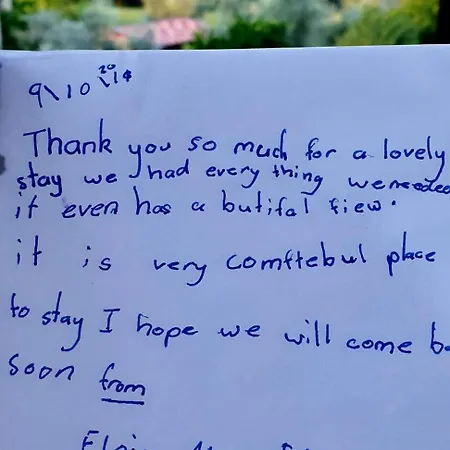 9\10\2014
Thank you so much for a lovely
stay we had every thing we needed
it even has a butifal fiew.
it is very comftebul place
to stay I hope we will come
soon from